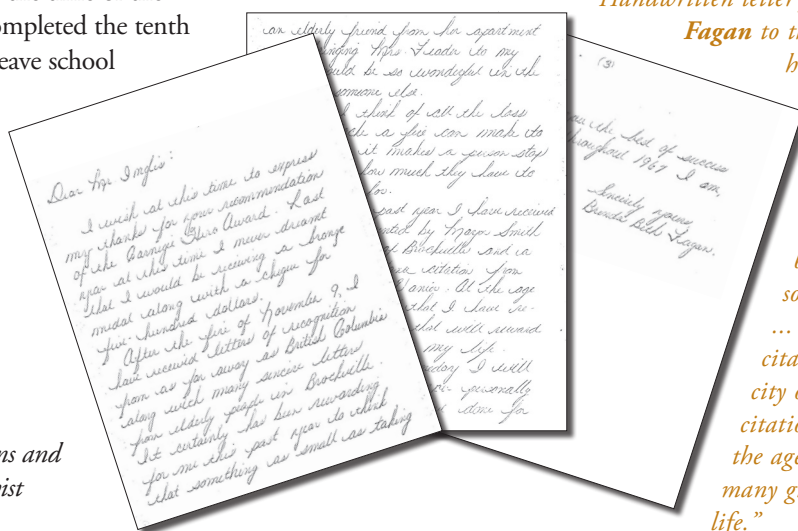 ompleted the tenth
eave school
Dear Mr. Inglis:
I wish at this time to express
my thanks for your recommendation
of the Carnegie Hero Award. Last
year at this time I never dreamt
that I would be receiving a bronze
medal along with a cheque for
five-hundred dollars.
After the fire of November 9, I
have received letters of recognition
from as far away as British Columbia
along with many sincere letters
from elderly people in Brockville.
It certainly has been rewarding
for me this past year to think
that something as small as taking
an elderly friend from her apartment
inging Mrs. Leader to my
uld be so wonderful in the
omeone else.
I think of all the loss
a fire can make
it makes a person stop
how much they have to
for.
past year I have received
nted by Mayor Smith
of Brockville and a
citation from
Vanier. At the age
that I have re-
that will reward
my life.
I will
personally
done for
(3)
ou the best of success
throughout 1967 I am,
Sincerely yours,
Brenda Beth Fagan.
Handwritten letter
Fagan to th
h
so
...
cita
city o
citation
the ag
many g
life.”
ns and
ist